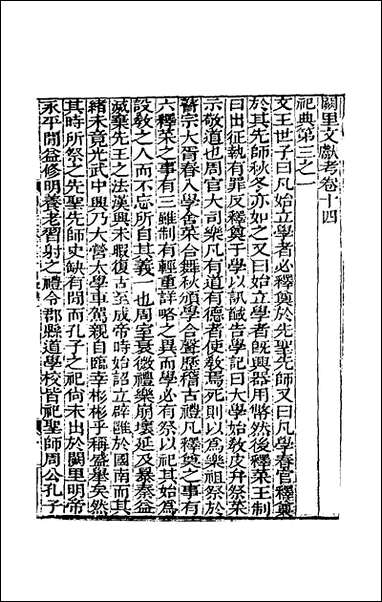 闕里文獻考卷十四
祀典第三之一
文王世子曰凡始立學者必釋奠於先聖先師又曰凡學春官釋奠
於其先師秋冬亦如之又曰始立學者既興器用幣然後釋菜王制
曰出征執有罪反釋奠于學以訊馘告學記曰大學始敎皮弁祭菜
示敬道也周官大司樂凡有道有德者使敎焉死則以爲樂祖祭於
瞽宗大胥春入學舍菜合舞秋頒學合聲歷稽古禮凡釋奠之事有
六釋菜之事有三雖制有輕重詳略之異而學必有祭以祀其始爲
設敎之人而不忘所自其義一也周室衰微禮樂崩壞延及暴秦益
滅棄先王之法漢興未暇復古至成帝時始詔立辟雝於國南而其
緖未竟光武中興乃大營太學車駕親自臨幸彬彬乎稱盛舉矣然
其時所祭之先聖先師史缺有閒而孔子之祀尙未出於闕里明帝
永平閒益修明養老習射之禮令郡縣道學校皆祀聖師周公孔子